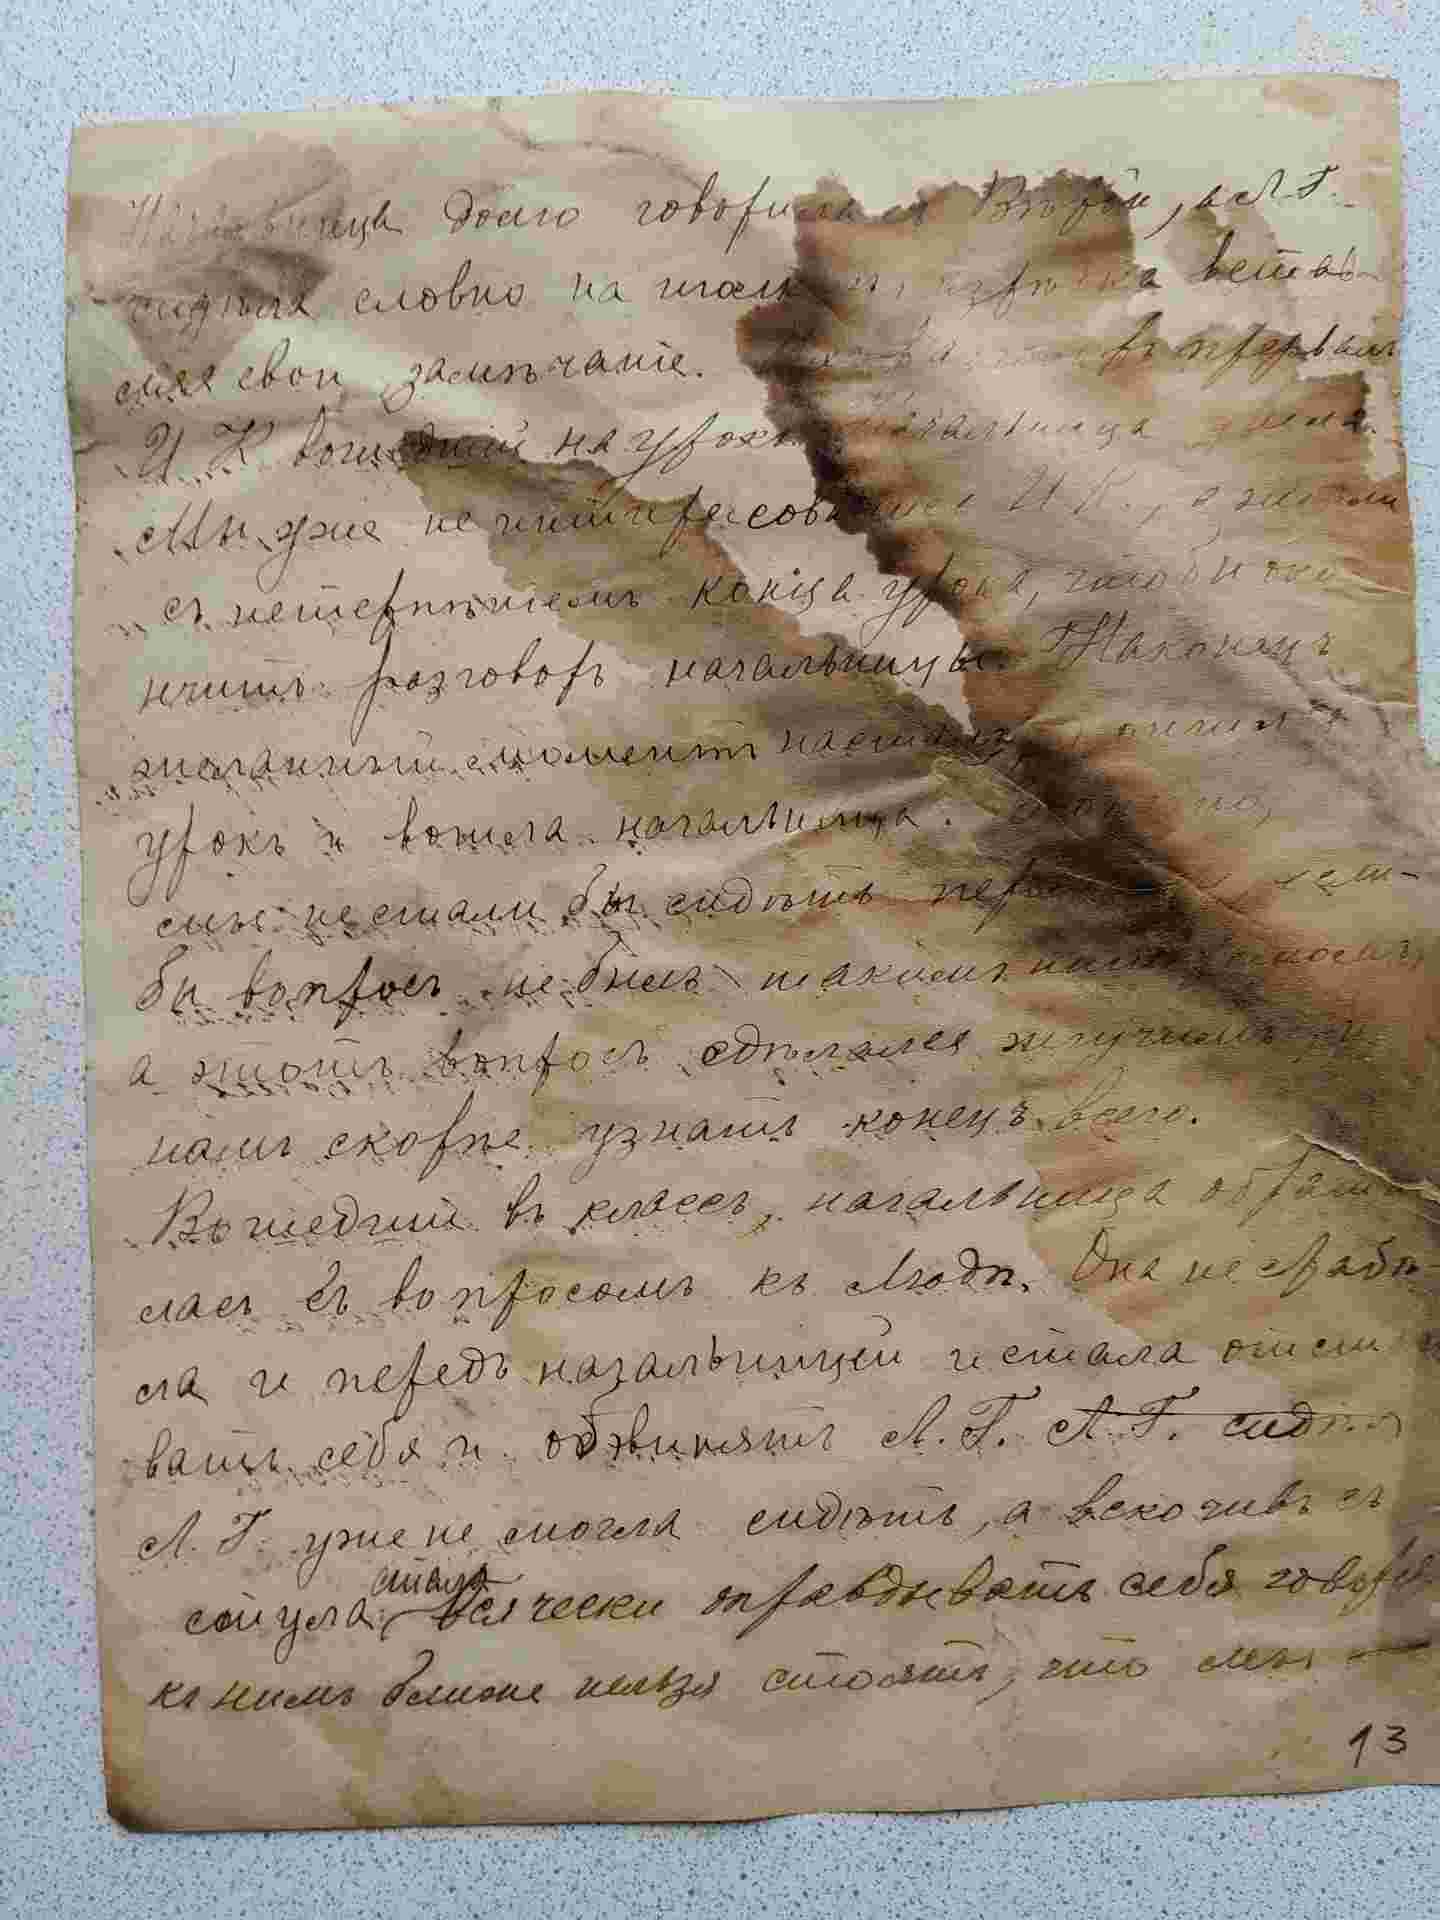 Начальница долго говорила съ Вѣрой, а Л. Г.
сидѣла словно на иголкахъ, изрѣдка встав-
ляя свои замѣчанія. въ прервалъ
И. К. вошедшій на урокъ. Начальница ушла.
Мы уже не интересовались И. К., а ждали
съ нетерпѣніемъ конца урока, чтобы око
нчить разговоръ начальницы. Наконецъ
желанный моментъ насталъ,
урокъ и вошла начальница. Конечно,
мы не стали бы сидѣть если-
бы вопросъ не былъ такимъ
а этотъ вопросъ сдѣлался жгучимъ и
намъ скорѣе узнать конецъ всего.
Вошедши въ классъ, начальница обрати
лась съ вопросомъ къ Людѣ. Она не сробѣ-
ла и передъ начальницей и стала отста
вать себя и обвинять Л. Г. Л. Г. сидѣла
Л. Г. уже не могла сидѣть, а вскочивъ съ
стула, стала всячески оправдывать себя говоря
къ нимъ ближе нельзя стоять, что мы
13